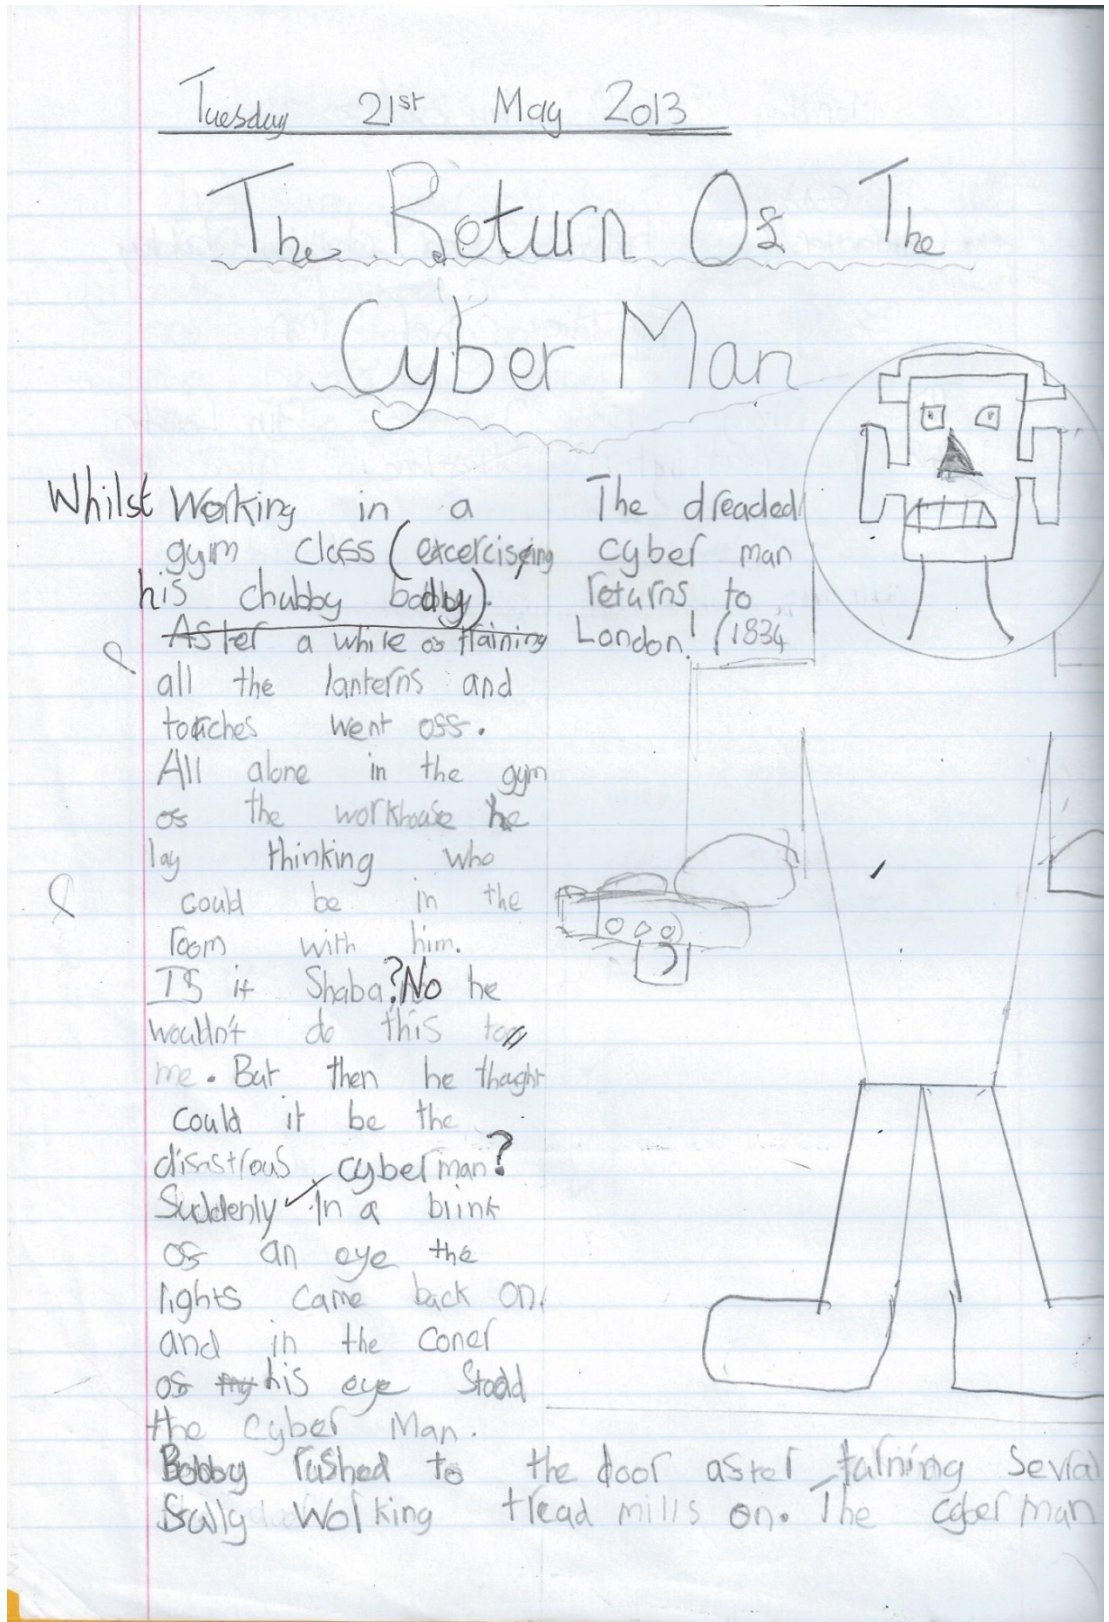 Tuesday 21st May 2013
The Return Of The
Cyber Man
Whilst Working in a
gym class (excercising
his chubby body).
After a while of training
all the lanterns and
torches went off.
All alone in the gym
of the workhouse he
lay thinking who
could be in the
room with him.
IS it Shaba? No he
wouldn't do this to
me. But then he thaght
could it be the
disastrous cyberman?
Suddenly In a blink
of an eye the
lights came back on
and in the coner
of my his eye Stood
the Cyber Man.
The dreaded
cyber man
returns to
London! (1834
Bobby rushed to the door after turning sevral
fully working tread mills on. The cyber man